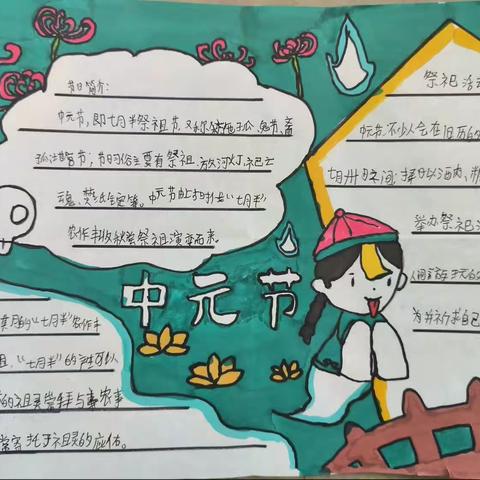 节日简介：
中元节，即七月半祭祖节，又称施孤、鬼节、斋
孤、地官节；节日习俗主要有祭祖、放河灯、祀亡
魂、焚纸锭等。中元节由上古时代"七月半"
农作丰收秋尝祭祖演变而来。
祭祀活动
中元节，不少人会在旧历的
七月卅日之间，择日以酒肉、
举办祭祀活
为并祈求自己
中元节
"七月半"农作丰
祖，"七月半"的产生可以
的祖灵崇拜与农事
常寄托于祖灵的应佑。